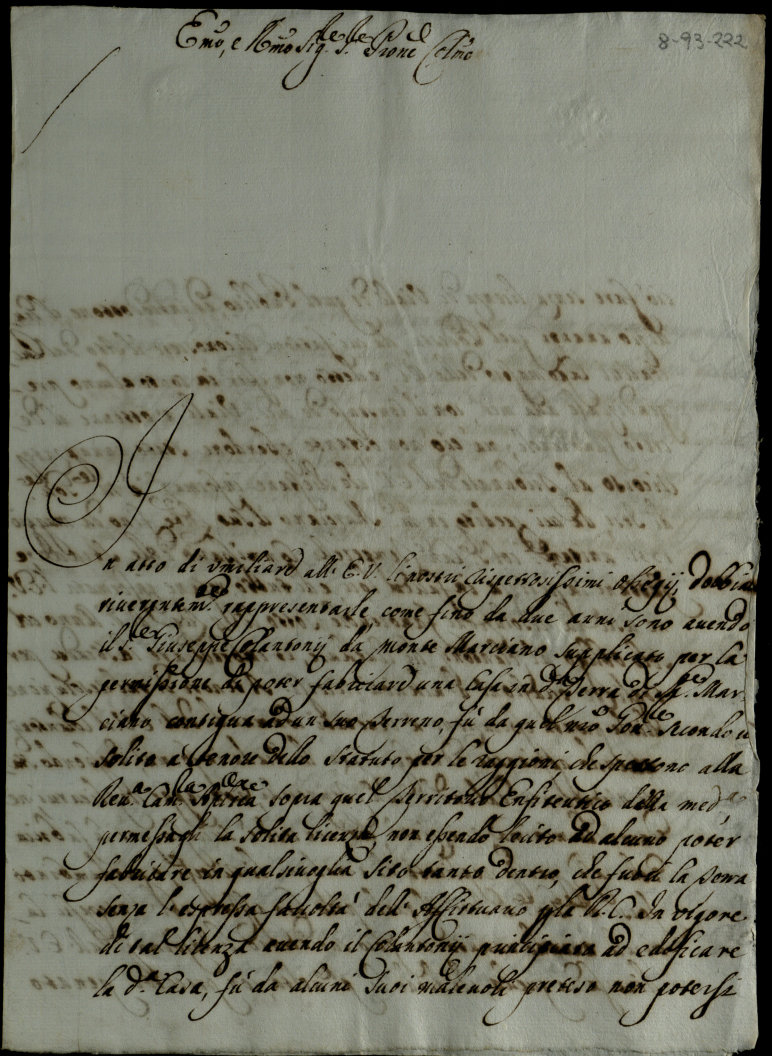 Emo, e Rmo Sig.re Sre Prone Colmo
8-93-222
In atto di umiliare all' E.V. li nostri rispettosissimi ossequij, dobbiam
riverentem.te rappresentarle come fino da due anni sono avendo
il S.re Giuseppe Colantonij da monte Marciano supplicato per la
permissione di poter fabricare una Casa in d.a Terra di M.te Mar-
ciano contigua ad un suo Terreno, fù da quel nro Gov.re secondo il
solito a tenore dello Statuto per le raggioni che spettono alla
Rev.a Cam.ra Aplica sopra quel Territorio Enfiteutico della med.a
permessagli la solita licenza, non essendo lecito ad alcuno poter
fabricare in qualsivoglia sito tanto dentro, che fuori la Terra
senza l' espressa facoltà dell' Affittuario p la R.C. In vigore
di tal licenza avendo il Colantonij principiato ad edificare
la d.a Casa, fù da alcuni suoi malevoli preteso non potersi